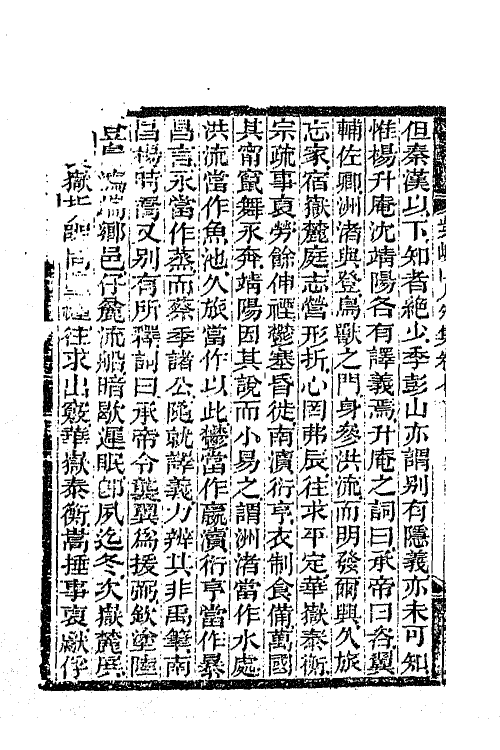 但秦漢以下知者絶少季彭山亦謂别有隱義亦未可知
惟楊升庵沈靖陽各有譯義焉升庵之詞曰承帝曰咨翼
輔佐卿洲渚與登鳥獸之門身參洪流而明發爾興久旅
忘家宿嶽麓庭志營形折心罔弗辰往求平定華嶽泰衡
宗疏事裒勞餘伸禋鬱塞昏徙南瀆衍亨衣制食備萬國
其甯竄舞永奔靖陽因其說而小易之謂洲渚當作水處
洪流當作魚池久旅當作以此鬱當作嬴瀆衍亨當作暴
昌言永當作蒸而蔡季諸公隨就譯義力辨其非禹筆南
昌楊時喬又别有所釋詞曰承帝令龑翼為援弼欽塗陸
瀉端鄉邑仔麓流船暗歇遲眠卽夙迄冬次嶽麓屏
嶽 往求出竅華嶽泰衡嵩捶事裒獻仔